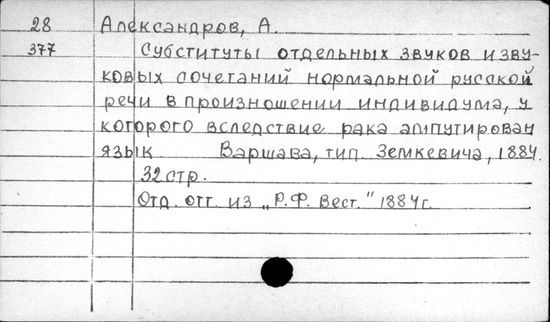 28 Александров, А.
377 Субституты отдельных звуков и зву-
ковых сочетаний нормальной русской
речи в произношении индивидума, у
которого вследствие рака ампутирован
язык Варшава, тип. Земкевича, 1884.
32 стр.
Отд. отт. из „Р.Ф. Вест." 1884 г.